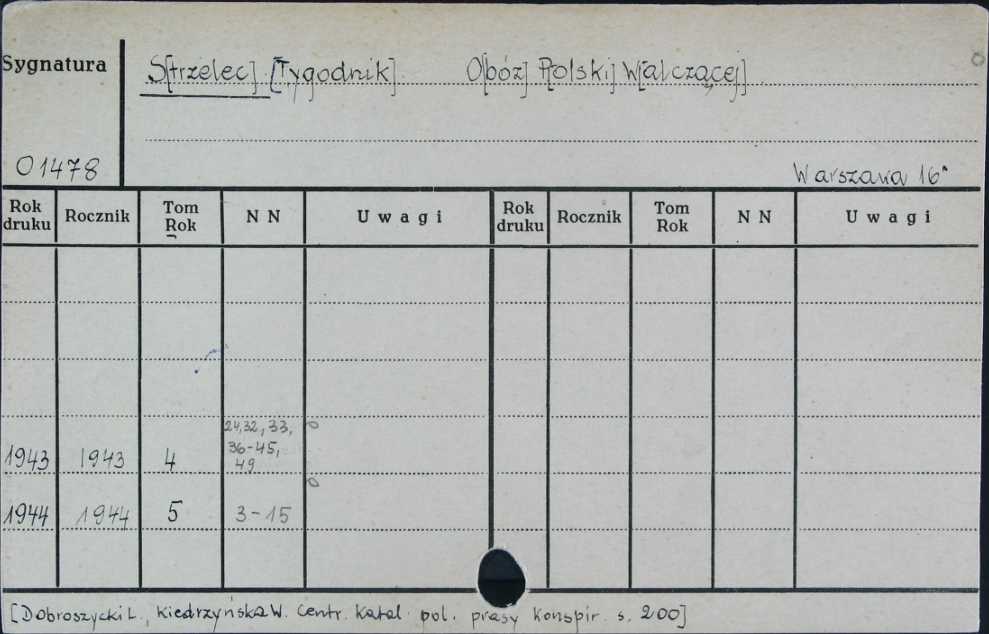 Sygnatura
S[trzelec] [Tygodnik] O[bóz] P[olski] W[alczącej]
01478
Warszawa 16°
Rok druku Rocznik Tom Rok N N Uwagi Rok druku Rocznik Tom Rok N N Uwagi
24,32,33,
36-45,
1943 1943 4 49
1944 1944 5 3-15
[Dobroszycki L., Kiedrzyńska W. Centr. Katal. pol. prasy konspir. s. 200]